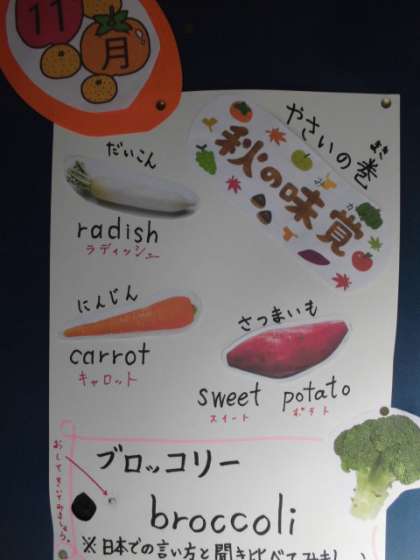 11
月
やさいの巻
まき
秋の味覚
みかく
だいこん
radish
ラディッシュ
にんじん
carrot
キャロット
さつまいも
sweet potato
スイート ポテト
ブロッコリー
broccoli
※日本での言い方と聞き比べてみまし
おしてきいてみましょう。